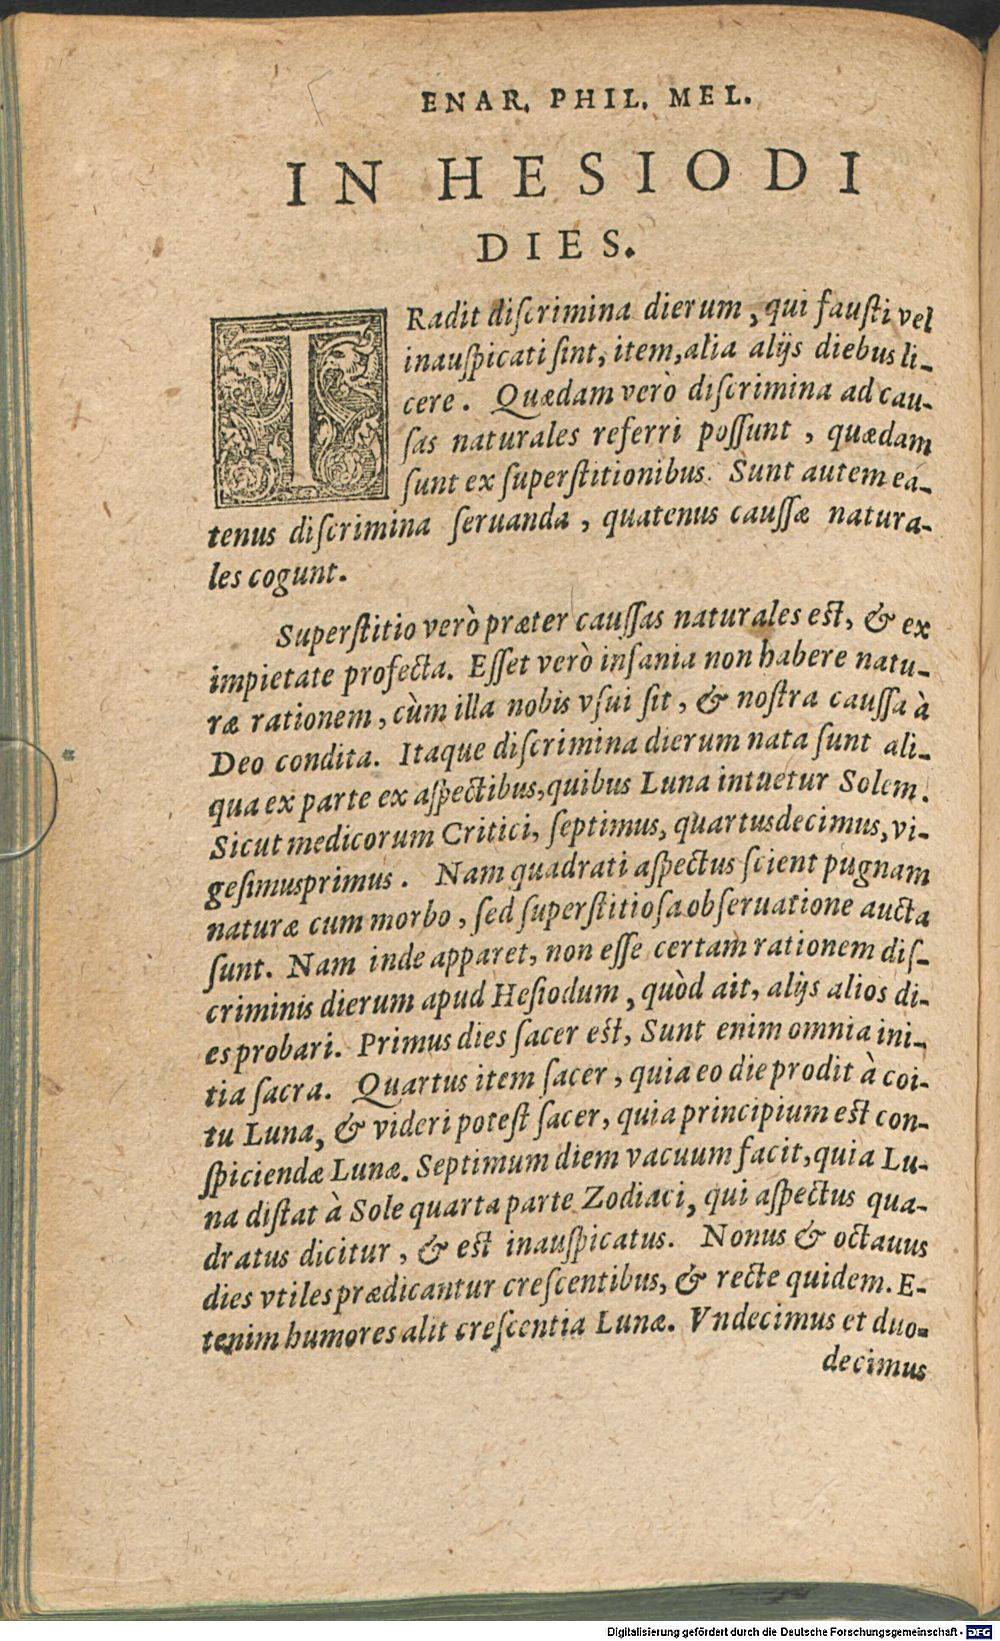 ENAR. PHIL. MEL.
IN HESIODI
DIES.
TRadit diſcrimina dierum, qui fauſti vel
inauſpicati ſint, item, alia alijs diebus li-
cere. Quædam verò diſcrimina ad cau-
ſas naturales referri poſſunt, quædam
ſunt ex ſuperſtitionibus. Sunt autem ea-
tenus diſcrimina ſeruanda, quatenus cauſſæ natura-
les cogunt.
Superſtitio verò præter cauſſas naturales eſt, & ex
impietate profecta. Eſſet verò inſania non habere natu-
ræ rationem, cùm illa nobis vſui ſit, & noſtra cauſſa à
Deo condita. Itaque diſcrimina dierum nata ſunt ali-
qua ex parte ex aſpectibus, quibus Luna intuetur Solem.
Sicut medicorum Critici, ſeptimus, quartusdecimus, vi-
geſimusprimus. Nam quadrati aſpectus ſcient pugnam
naturæ cum morbo, ſed ſuperſtitioſa obſeruatione aucta
ſunt. Nam inde apparet, non eſſe certam rationem diſ-
criminis dierum apud Heſiodum, quòd ait, alijs alios di-
es probari. Primus dies ſacer eſt, Sunt enim omnia ini-
tia ſacra. Quartus item ſacer, quia eo die prodit à coi-
tu Luna, & videri poteſt ſacer, quia principium eſt con-
ſpiciendæ Lunæ. Septimum diem vacuum facit, quia Lu-
na diſtat à Sole quarta parte Zodiaci, qui aſpectus qua-
dratus dicitur, & eſt inauſpicatus. Nonus & octauus
dies vtiles prædicantur creſcentibus, & recte quidem. E-
tenim humores alit creſcentia Lunæ. Vndecimus et duo-
decimus
Digitalisierung gefördert durch die Deutsche Forschungsgemeinschaft - DFG